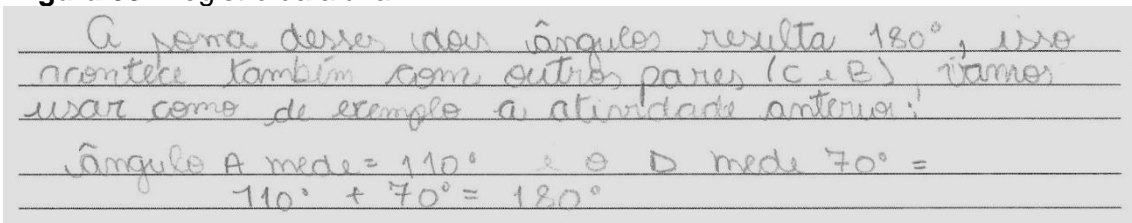 A soma desses dois ângulos resulta 180°, isso
acontece também com outros pares (C e B) vamos
usar como de exemplo a atividade anterior:
ângulo A mede = 110° e o D mede 70° =
110° + 70° = 180°